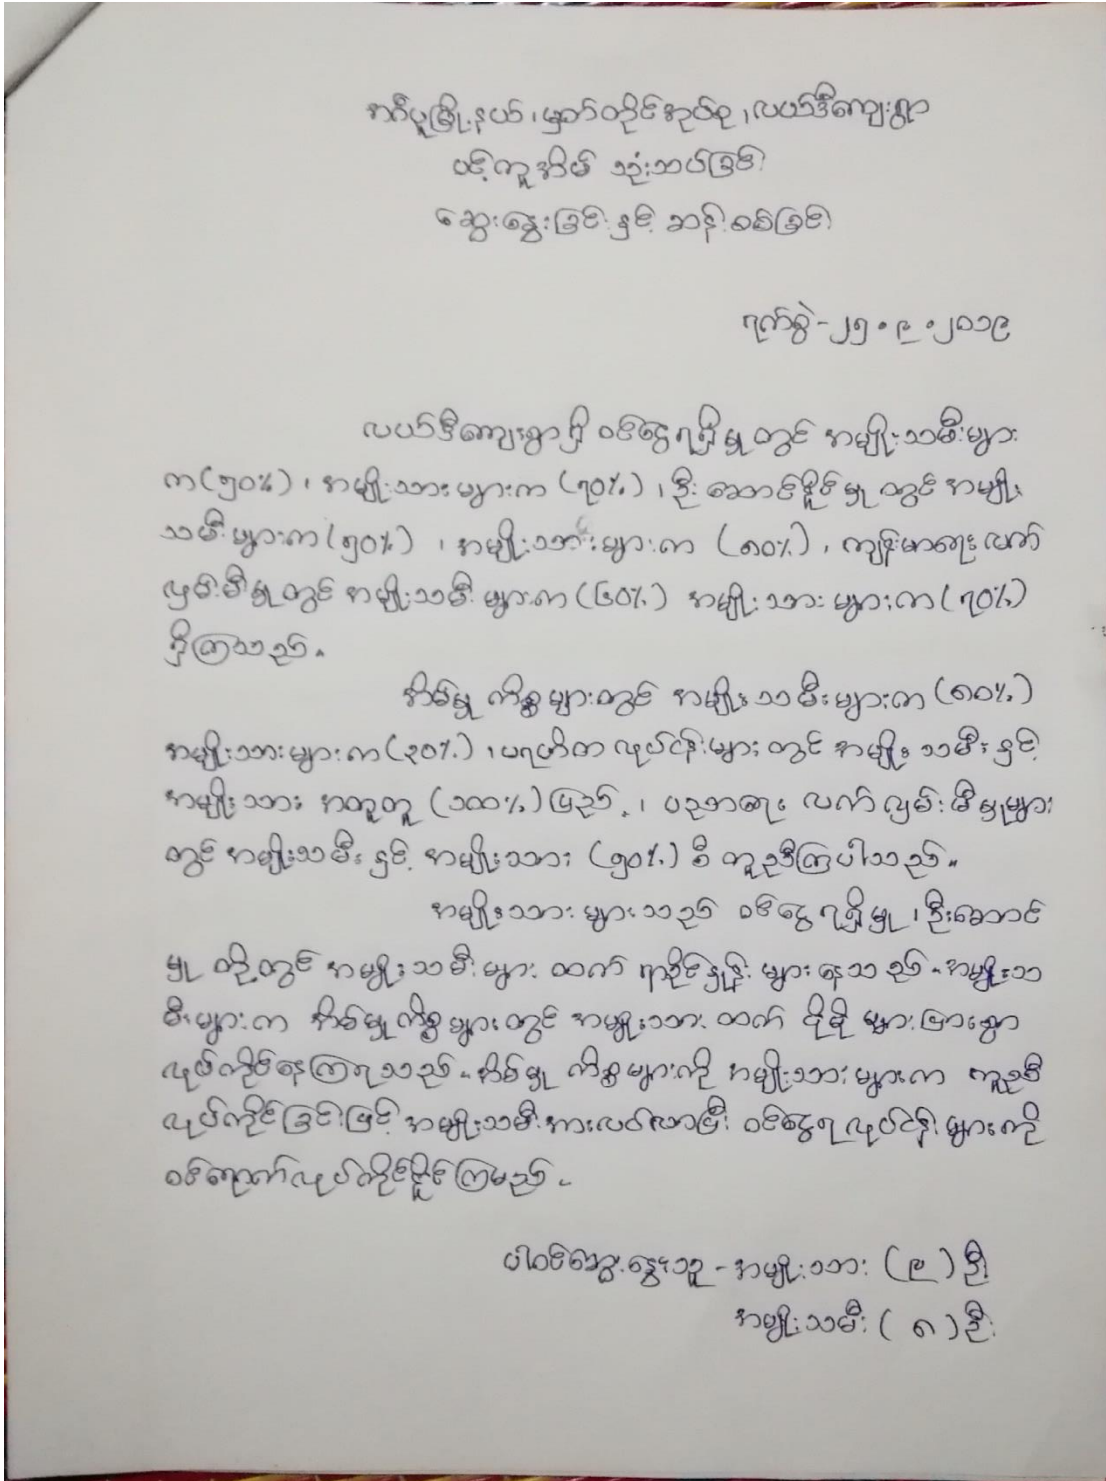 အင်္ဂပူမြို့နယ်၊ မှတ်တိုင်အုပ်စု၊ လယ်ဒီကျေးရွာ
ပင့်ကူအိမ် သုံးသပ်ခြင်း
ဆွေးနွေးခြင်း နှင့် ဆန်းစစ်ခြင်း
ရက်စွဲ - ၂၅.၉.၂၀၁၉
လယ်ဒီကျေးရွာ၌ ဝင်ငွေရရှိမှုတွင် အမျိုးသမီးများ
က (၅၀%)၊ အမျိုးသားများက (၇၀%)၊ ဦးဆောင်နိုင်မှုတွင် အမျိုး
သမီးများက (၅၀%)၊ အမျိုးသားများက (၈၀%)၊ ကျန်းမာရေးလက်
လှမ်းမီမှုတွင် အမျိုးသမီးများက (၆၀%) အမျိုးသားများက (၇၀%)
ရှိကြသည်။
အိမ်မှုကိစ္စများတွင် အမျိုးသမီးများက (၈၀%)
အမျိုးသားများက (၃၀%)၊ ပရဟိတလုပ်ငန်းများတွင် အမျိုးသမီးနှင့်
အမျိုးသား အတူတူ (၁၀၀%) ပြည့်၊ ပညာရေး လက်လှမ်းမီမှုများ
တွင် အမျိုးသမီးနှင့် အမျိုးသား (၅၀%) စီ တူညီကြပါသည်။
အမျိုးသားများသည် ဝင်ငွေရရှိမှု၊ ဦးဆောင်
မှု တို့တွင် အမျိုးသမီးများထက် ရာခိုင်နှုန်းများနေသည်။ အမျိုးသ
မီးများက အိမ်မှုကိစ္စများတွင် အမျိုးသားထက် ပိုမို များပြားစွာ
လုပ်ကိုင်နေကြရသည်။ အိမ်မှုကိစ္စများကို အမျိုးသားများက ကူညီ
လုပ်ကိုင်ခြင်းဖြင့် အမျိုးသမီးအားလပ်လာပြီး ဝင်ငွေရလုပ်ငန်းများကို
ဝင်ရောက်လုပ်ကိုင်နိုင်ကြမည်။
ပါဝင်ဆွေးနွေးသူ - အမျိုးသား (၉) ဦး
အမျိုးသမီး (၈) ဦး